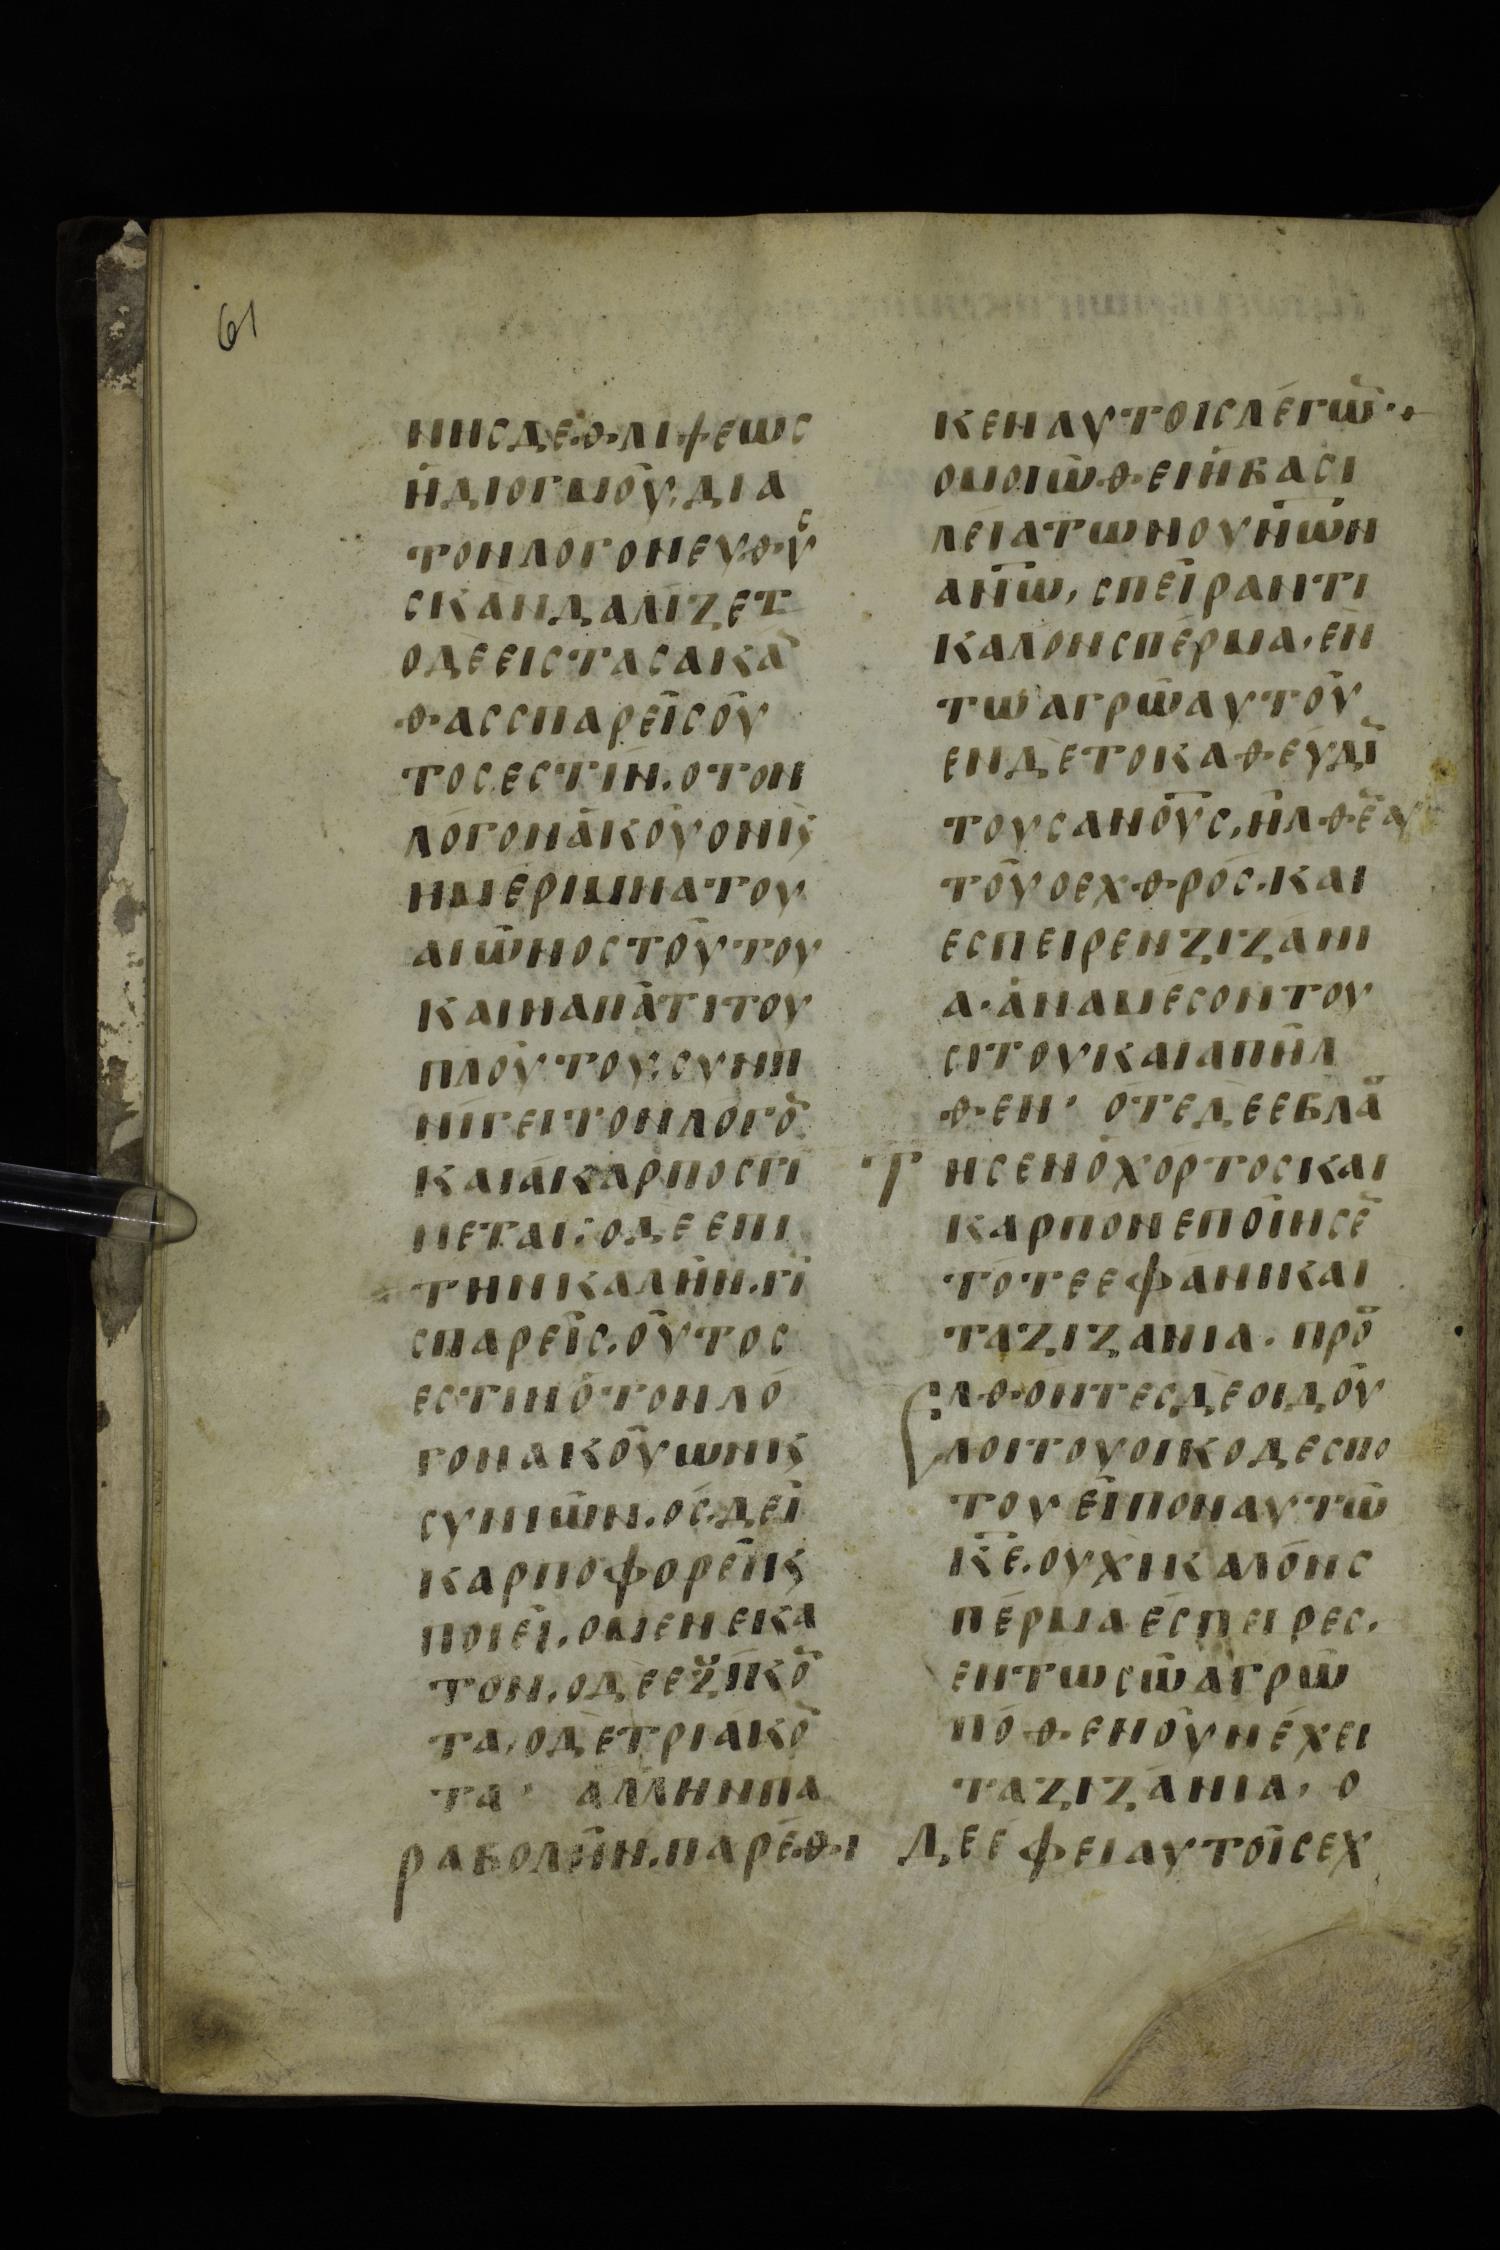 61
ΝΗΣΔΕΘΛΙΨΕΩΣ
ἢΔΙΟΓΜΟῦ, ΔΙΑ
ΤΟΝΛΟΓΟΝΕΥΘΥΣ
ΣΚΑΝΔΑΛΙΖΕΤ
ΟΔΕΕΙΣΤΑΣΑΚΑ̅
ΘΑΣΣΠΑΡΕΙΣΟῦ
ΤΟΣΕΣΤΙΝ. ΟΤΟΝ
ΛΟΓΟΝΑΚΟΥΟΝΚ̣
ΗΜΕΡΙΜΝΑΤΟΥ
ΑΙῶΝΟΣΤΟΥΤΟΥ
ΚΑΙΗΑΠΑΤΙΤΟΥ
ΠΛΟΥΤΟΥ, ΣΥΝΠ
ΝΙΓΕΙΤΟΝΛΟΓΟ̅
ΚΑΙΑΚΑΡΠΟΣΓΙ
ΝΕΤΑΙ: ΟΔΕΕΠΙ
ΤΗΝΚΑΛῊΝ. ΓΙ
ΣΠΑΡΕΙΣ. ΟῦΤΟΣ
ΕΣΤΙΝὁΤΟΝΛΟ
ΓΟΝΑΚΟΥΩΝΚ̣
ΣΥΝΙῶΝ. ΟΣΔΕῖ
ΚΑΡΠΟΦΟΡΕῖΚ̣
ΠΟΙΕῖ. ΟΜΕΝΕΚΑ
ΤΟΝ. ΟΔΕΕΞΙΚΟ̅
ΤΑ, ΟΔΕΤΡΙΑΚΟ̅
ΤΑ, ΑΛΛΗΝΠΑ
ΡΑΒΟΛΗΝ. ΠΑΡΕΘΙ
ΚΕΝΑΥΤΟΙΣΛΕΓΩ̅·
ΟΜΟΙΩ̅ΘΕΙἡΒΑΣΙ
ΛΕΙΑΤΩΝΟΥΝ̅Ω̅Ν
ΑΝ̅Ω̅, ΣΠΕΙΡΑΝΤΙ
ΚΑΛΟΝΣΠΕΡΜΑ, ΕΝ
ΤΩΑΓΡῶΑΥΤΟῦ
ΕΝΔΕΤΟΚΑΘΕΥΔΙ̅
ΤΟΥΣΑΝ̅Ο̅Υ̅Σ, ἦΛΘΕ̅ΑΥ
ΤΟῦΟΕΧΘΡΟΣ. ΚΑΙ
ΕΣΠΕΙΡΕΝΖΙΖΑΝΙ
Α. ΑΝΑΜΕΣΟΝΤΟΥ
ΣΙΤΟΥΚΑΙΑΠΗΛ
ΘΕΝ, ΟΤΕΔΕΕΒΛΑ̅
ΤΗΣΕΝὁΧΟΡΤΟΣΚΑΙ
ΚΑΡΠΟΝΕΠΟΙΗΣΕ̅
ΤΟΤΕΕΦΑΝΙΚΑΙ
ΤΑΖΙΖΑΝΙΑ. ΠΡΟ̅
ΕΛΘΟΝΤΕΣΔΕΟΙΔΟῦ
ΛΟΙΤΟΥΟΙΚΟΔΕΣΠΟ
ΤΟΥΕΙΠΟΝΑΥΤῶ
Κ̅Ε̅. ΟΥΧΙΚΑΛΟΝΣ
ΠΕΡΜΑΕΣΠΕΙΡΕΣ.
ΕΝΤΩΣῶΑΓΡῶ
ΠΟΘΕΝΟῦΝΕΧΕΙ
ΤΑΖΙΖΑΝΙΑ, Ο
ΔΕΕΦΕΙΑΥΤΟῖΣΕΧ